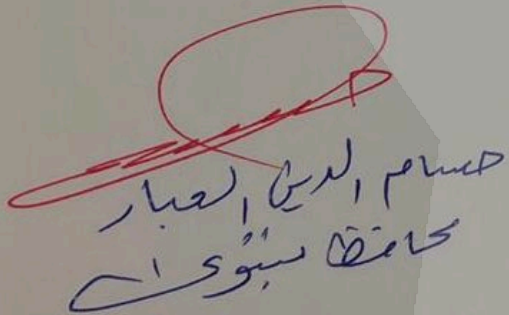 حسام الدين العبار
محافظ نينوى